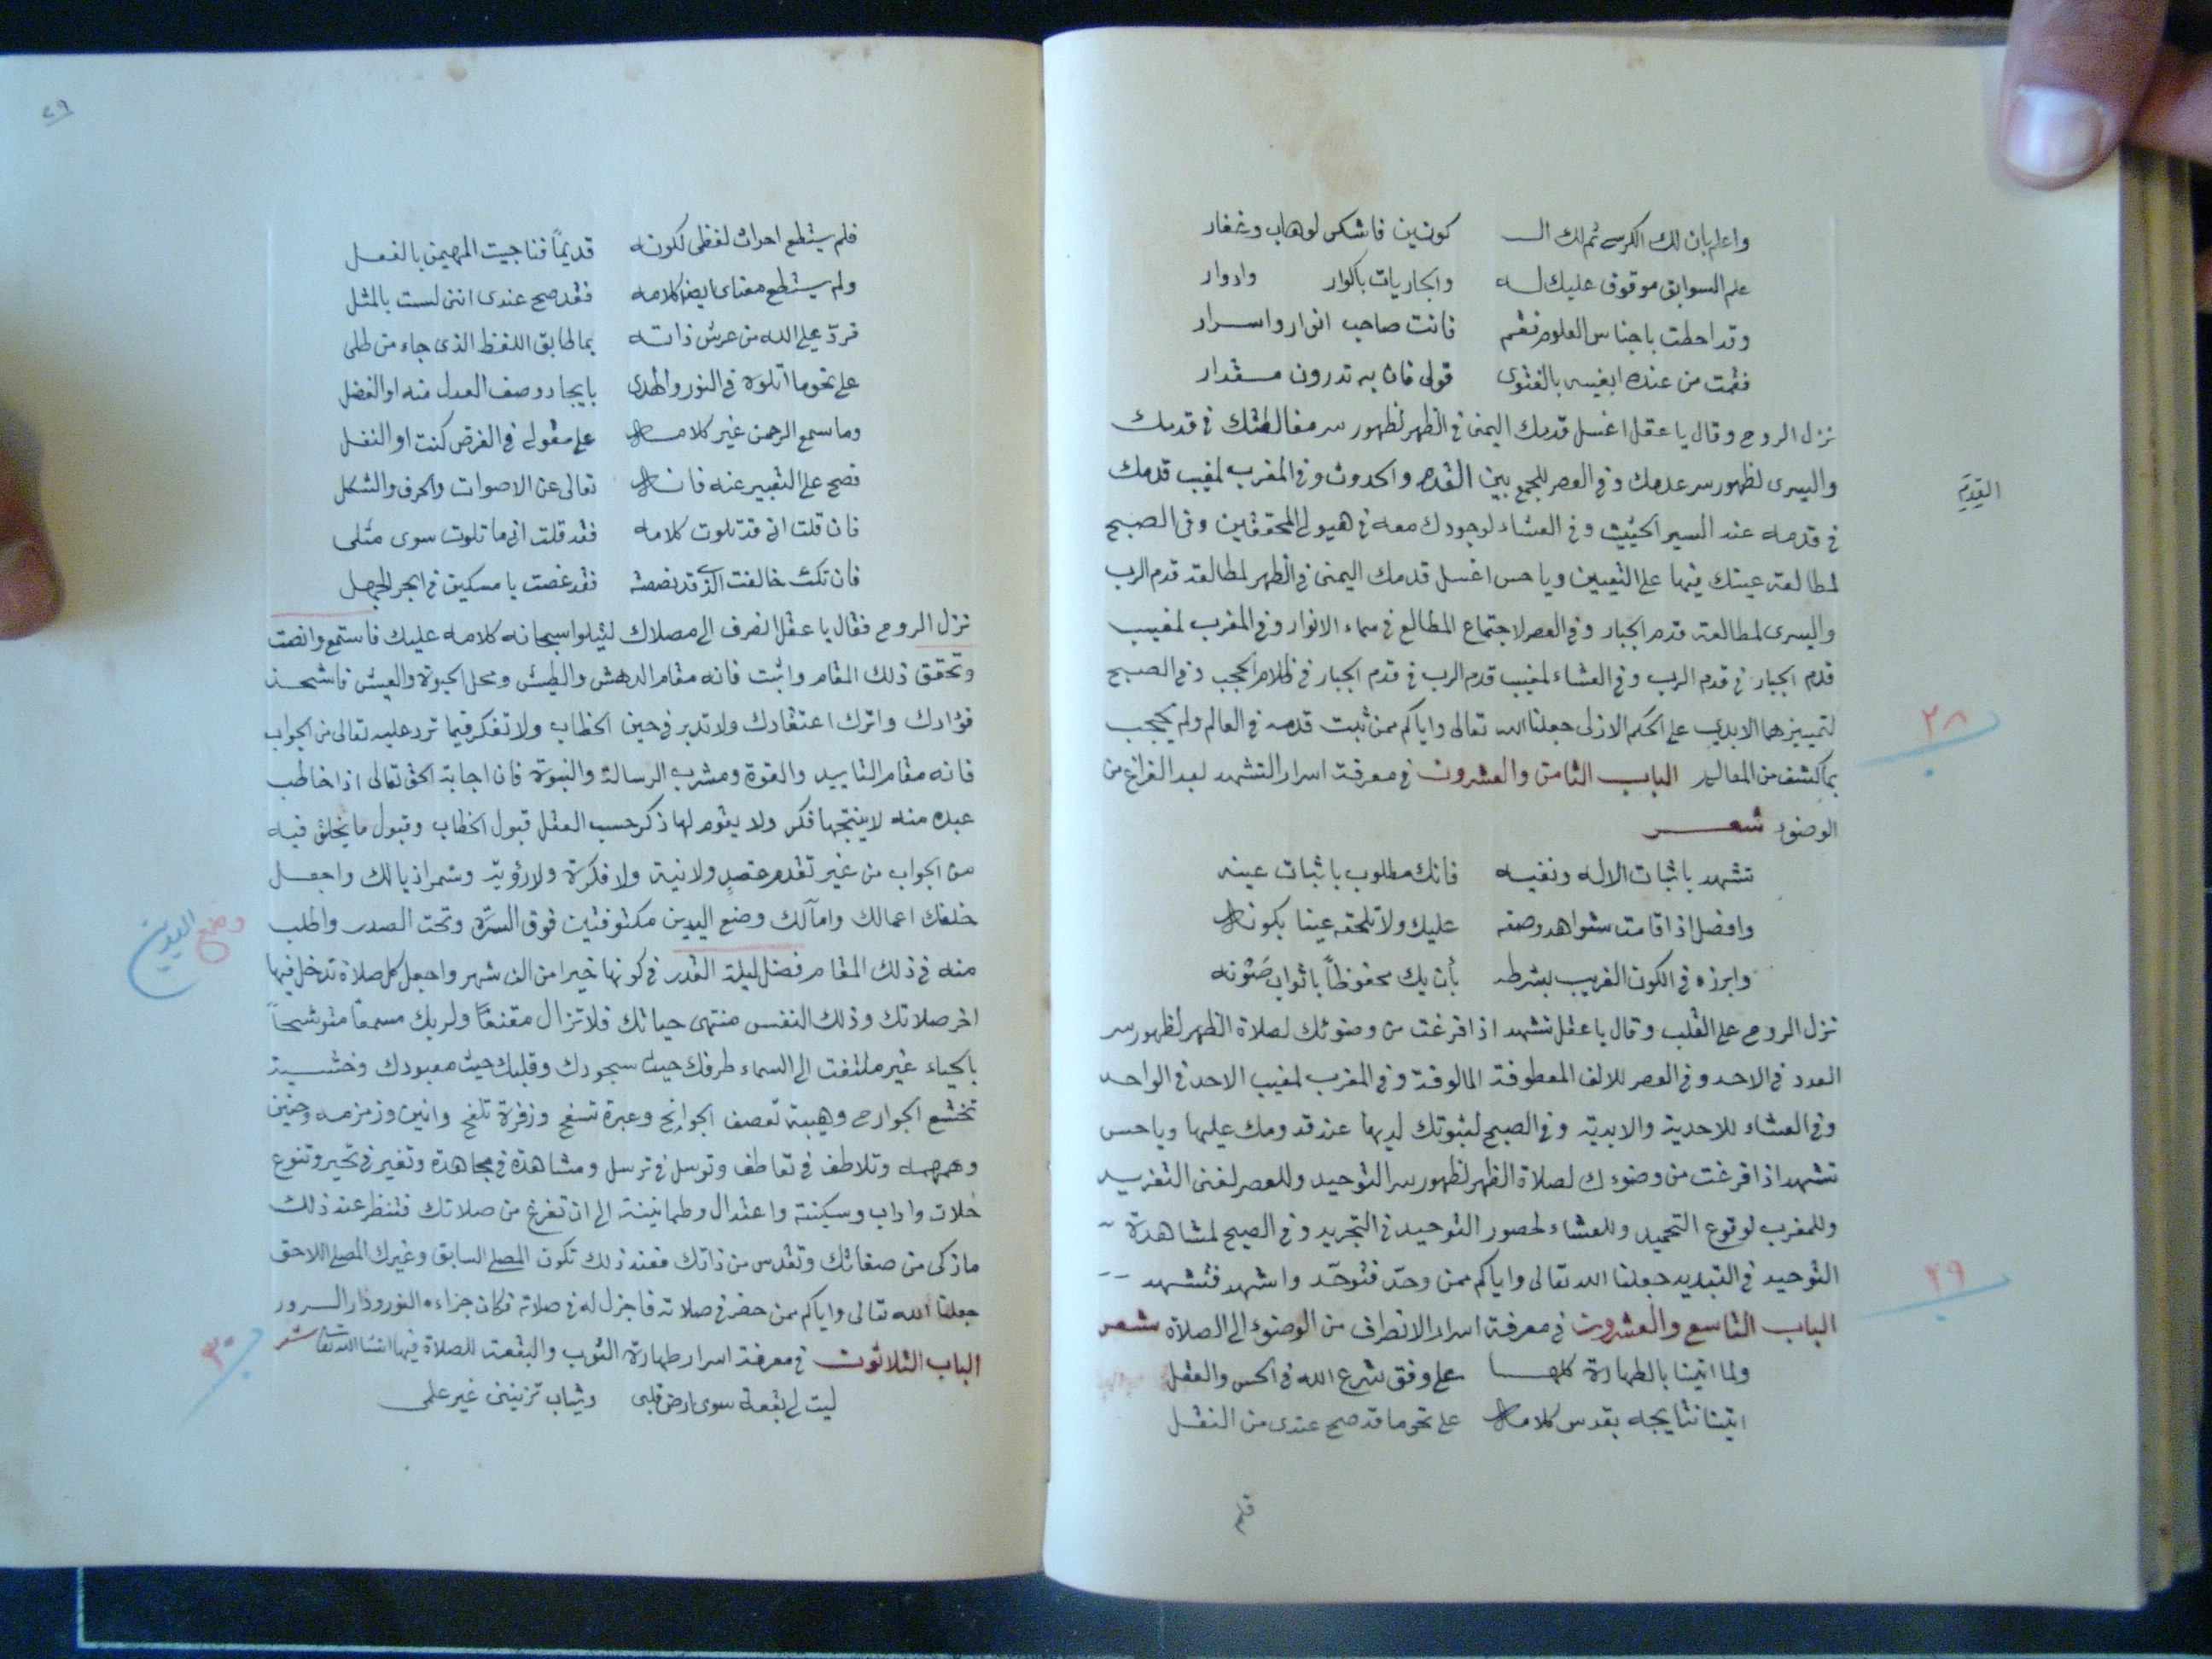 واعلم بان لك الكرسي ثم لك الـ كونين فاشكر لوهاب وغفار
علم السوابق موقوف عليك له والجاريات باكوار وادوار
وقد احطت باجناس العلوم فقم فانت صاحب انوار واسرار
فقمت من عنده ابغيه بالفتوى قولى فان به تدرون مقدار
نزل الروح وقال يا عقل اغسل قدمك اليمنى في الظهر لظهور سر في قدمك
واليسرى لظهور سر عدمك وفي العصر للجمع بين القدم والحدوث وفي المغرب لمغيب قدمك
القِدَم
في قدمه عند السير الحثيث وفي العشاء لوجودك معه في هيولى المحققين وفي الصبح
لمطالعة عينك فيها على التعيين ويا حس اغسل قدمك اليمنى في الظهر لمطالعة قدم الرب
واليسرى لمطالعة قدم الجبار وفي العصر لاجتماع المطالع في سماء الانوار وفي المغرب لمغيب
قدم الجبار في قدم الرب وفي العشاء لمغيب قدم الرب في قدم الجبار في ظلام الحجب وفي الصبح
لتمييزهما الابدي على الحكم الازلى جعلنا الله تعالى واياكم ممن ثبت قدمه في العالم ولم يحجب
٢٨
بما كشف من المعالم الباب الثامن والعشرون في معرفة اسرار التشهد بعد الفراغ من
الوضوء شعر
تشهد باثبات الاله ونفيه فانك مطلوب باثبات عينه
وافضل اذا قامت شواهد وصفه عليك ولا تلحقه عينا بكونه
وابرزه في الكون الغريب بشرطه بأن يك محفوظاً باثواب صَوْنه
نزل الروح على القلب وقال يا عقل تشهد اذا فرغت من وضوئك لصلاة الظهر لظهور سر
العدد في الاحد وفي العصر للالف المعطوفة المالوفة وفي المغرب لمغيب الاحد في الواحد
وفي العشاء للاحدية والابدية وفي الصبح لثبوتك لديها عند قدومك عليها ويا حس
تشهد اذا فرغت من وضوءك لصلاة الظهر لظهور سر التوحيد وللعصر لغنى التفريد
وللمغرب لوقوع التحميد وللعشاء لحضور التوحيد في التجريد وفي الصبح لمشاهدة
التوحيد في جعلنا الله تعالى واياكم ممن وحّد فتوحّد واشهد فتشهد
٢٩
الباب التاسع والعشرون في معرفة اسرار الانصراف من الوضوء الى الصلاة شعر
ولما اتينا بالطهارة كلها على وفق شرع الله في الحس والعقل
اتينا نناجيه بقدس كلامه على نحو ما قد صح عندى من النقل
فلم
٢٩
فلم يستطع احداث لفظى لكونه قديماً فناجيت المهيمن بالفعل
ولم يستطع معناى ايضا كلامه فقد صح عندى اننى لست بالمثل
فردّ على الله من عرش ذاته بما طابق اللفظ الذى جاء من
على نحو ما اتلوه في النور والهدى بايجاد وصف العدل منه او الفضل
وما سمع الرحمن غير كلامه على مقولى في الفرض كنت او النفل
فصح على التعبير عنه فانه تعالى عن الاصوات والحرف والشكل
فان قلت انى قد تلوت كلامه فقد قلت انى ما تلوت سوى مثلى
فان تكن خالفت الذى قد نصصته فقد غصت يا مسكين في ابحر الجهل
نزل الروح فقال يا عقل انصرف الى مصلاك ليتلوا سبحانه كلامه عليك فاستمع وانصت
وتحقق ذلك المقام واثبت فانه مقام الدهش والطيش ومحل الحيوة والعيش فاشحذ
فؤادك واترك اعتقادك ولا تدبر في حين الخطاب ولا تفكر فيما ترد عليه تعالى من الجواب
فانه مقام التاييد والقوة ومشرب الرسالة والنبوة فان اجابة الحق تعالى اذا خاطب
عبده منه لا ينتجها فكر ولا يقوم لها ذكر حسب العقل قبول الخطاب وقبول ما يخلق فيه
من الجواب من غير تقدم قصد ولا نية ولا فكرة ولا رؤية وشمر اذيالك واجعل
خلفك اعمالك وامآلك وضع اليدين مكتوفتين فوق السرّة وتحت الصدر واطلب
وضع اليدين
منه في ذلك المقام فضل ليلة القدر في كونها خيرا من الف شهر واجعل كل صلاة تدخل فيها
اخر صلاتك وذلك النفس منتهى حياتك فلا تزال مقنعاً ولربك مسمعا متوشحاً
بالحياء غير ملتفت الى السماء طرفك حيث سجودك وقلبك حيث معبودك وخشية
تخشع الجوارح وهيبة تعصف الجوانح وعبرة تسفح وزفرة تلفح وانين وزمزمه وحنين
وهمهمه وتلاطف في تعاطف وتوسل في ترسل ومشاهدة في مجاهدة وتغير في تحير وتنوع
حلات واداب وسكينة واعتدال وطمانينة الى ان تفرغ من صلاتك فتنظر عند ذلك
ما زكى من صفاتك وتقدس من ذاتك فعند ذلك تكون المصلى السابق وغيرك المصلى اللاحق
جعلنا الله تعالى واياكم ممن حضر في صلاته فاجزل له في صلاته فكان جزاءه النور ودار السرور
٣٠
الباب الثلاثون في معرفة اسرار طهارة الثوب والبقعة للصلاة فيها انشا الله تعا شعر
ليت لى بقعة سوى ارض قلبى وثياب تزيننى غير علمى